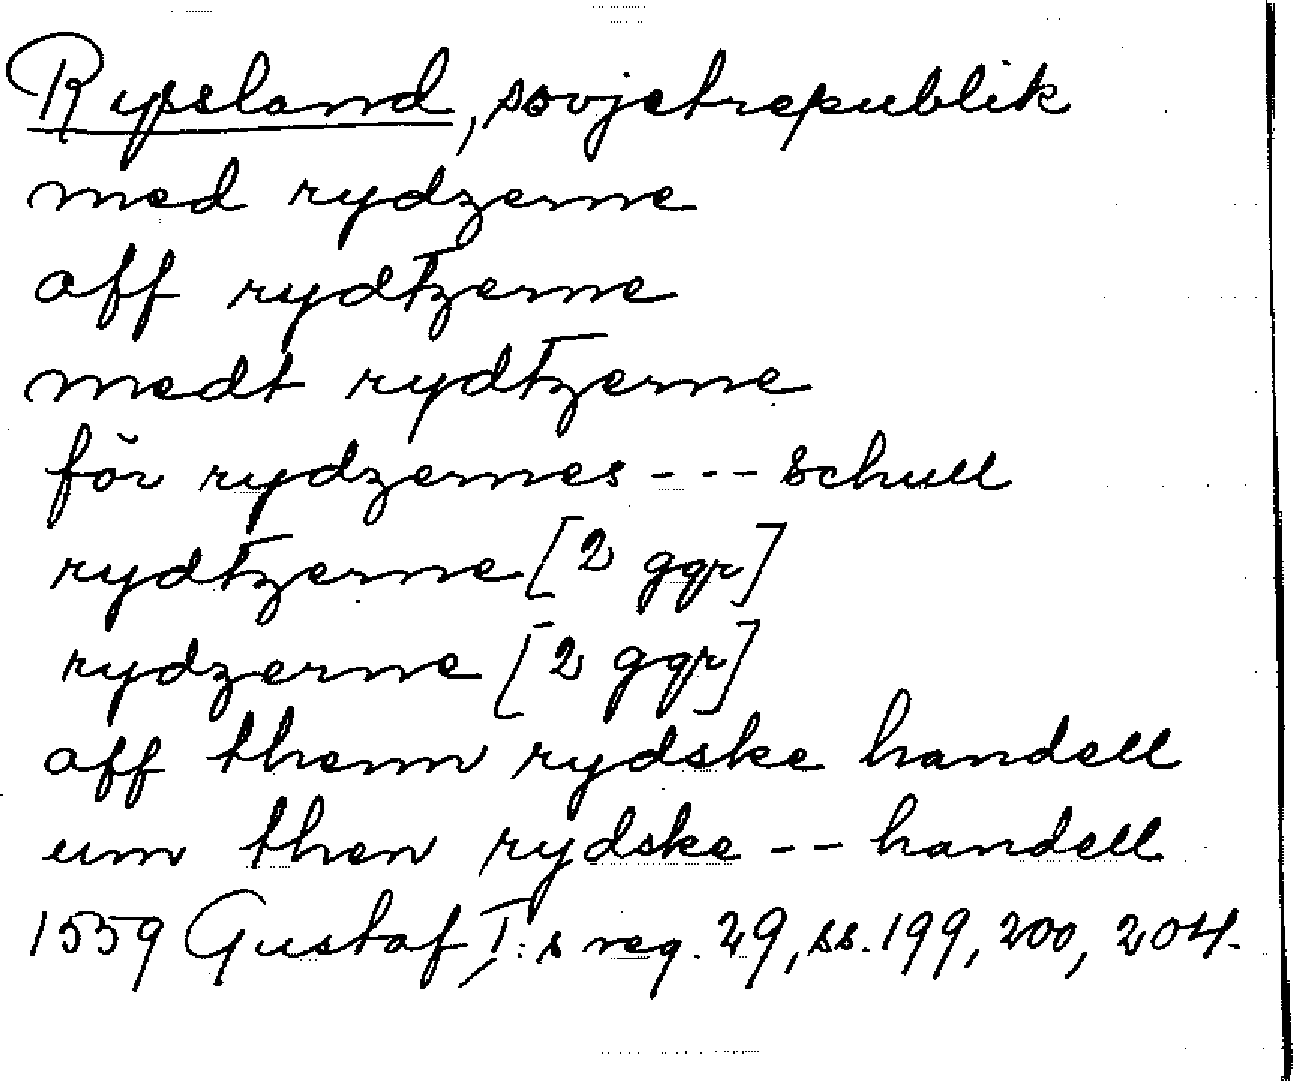 Ryssland, sovjetrepublik
med rydzerne
aff rydtzerne
medt rydtzerne
för rydzernes - - - schull
rydtzerne [2 ggr]
rydzerne [2 ggr]
aff thenn rydske handell
um then rydske - - handell
1559 Gustaf I:s reg. 29, ss. 199, 200, 204.